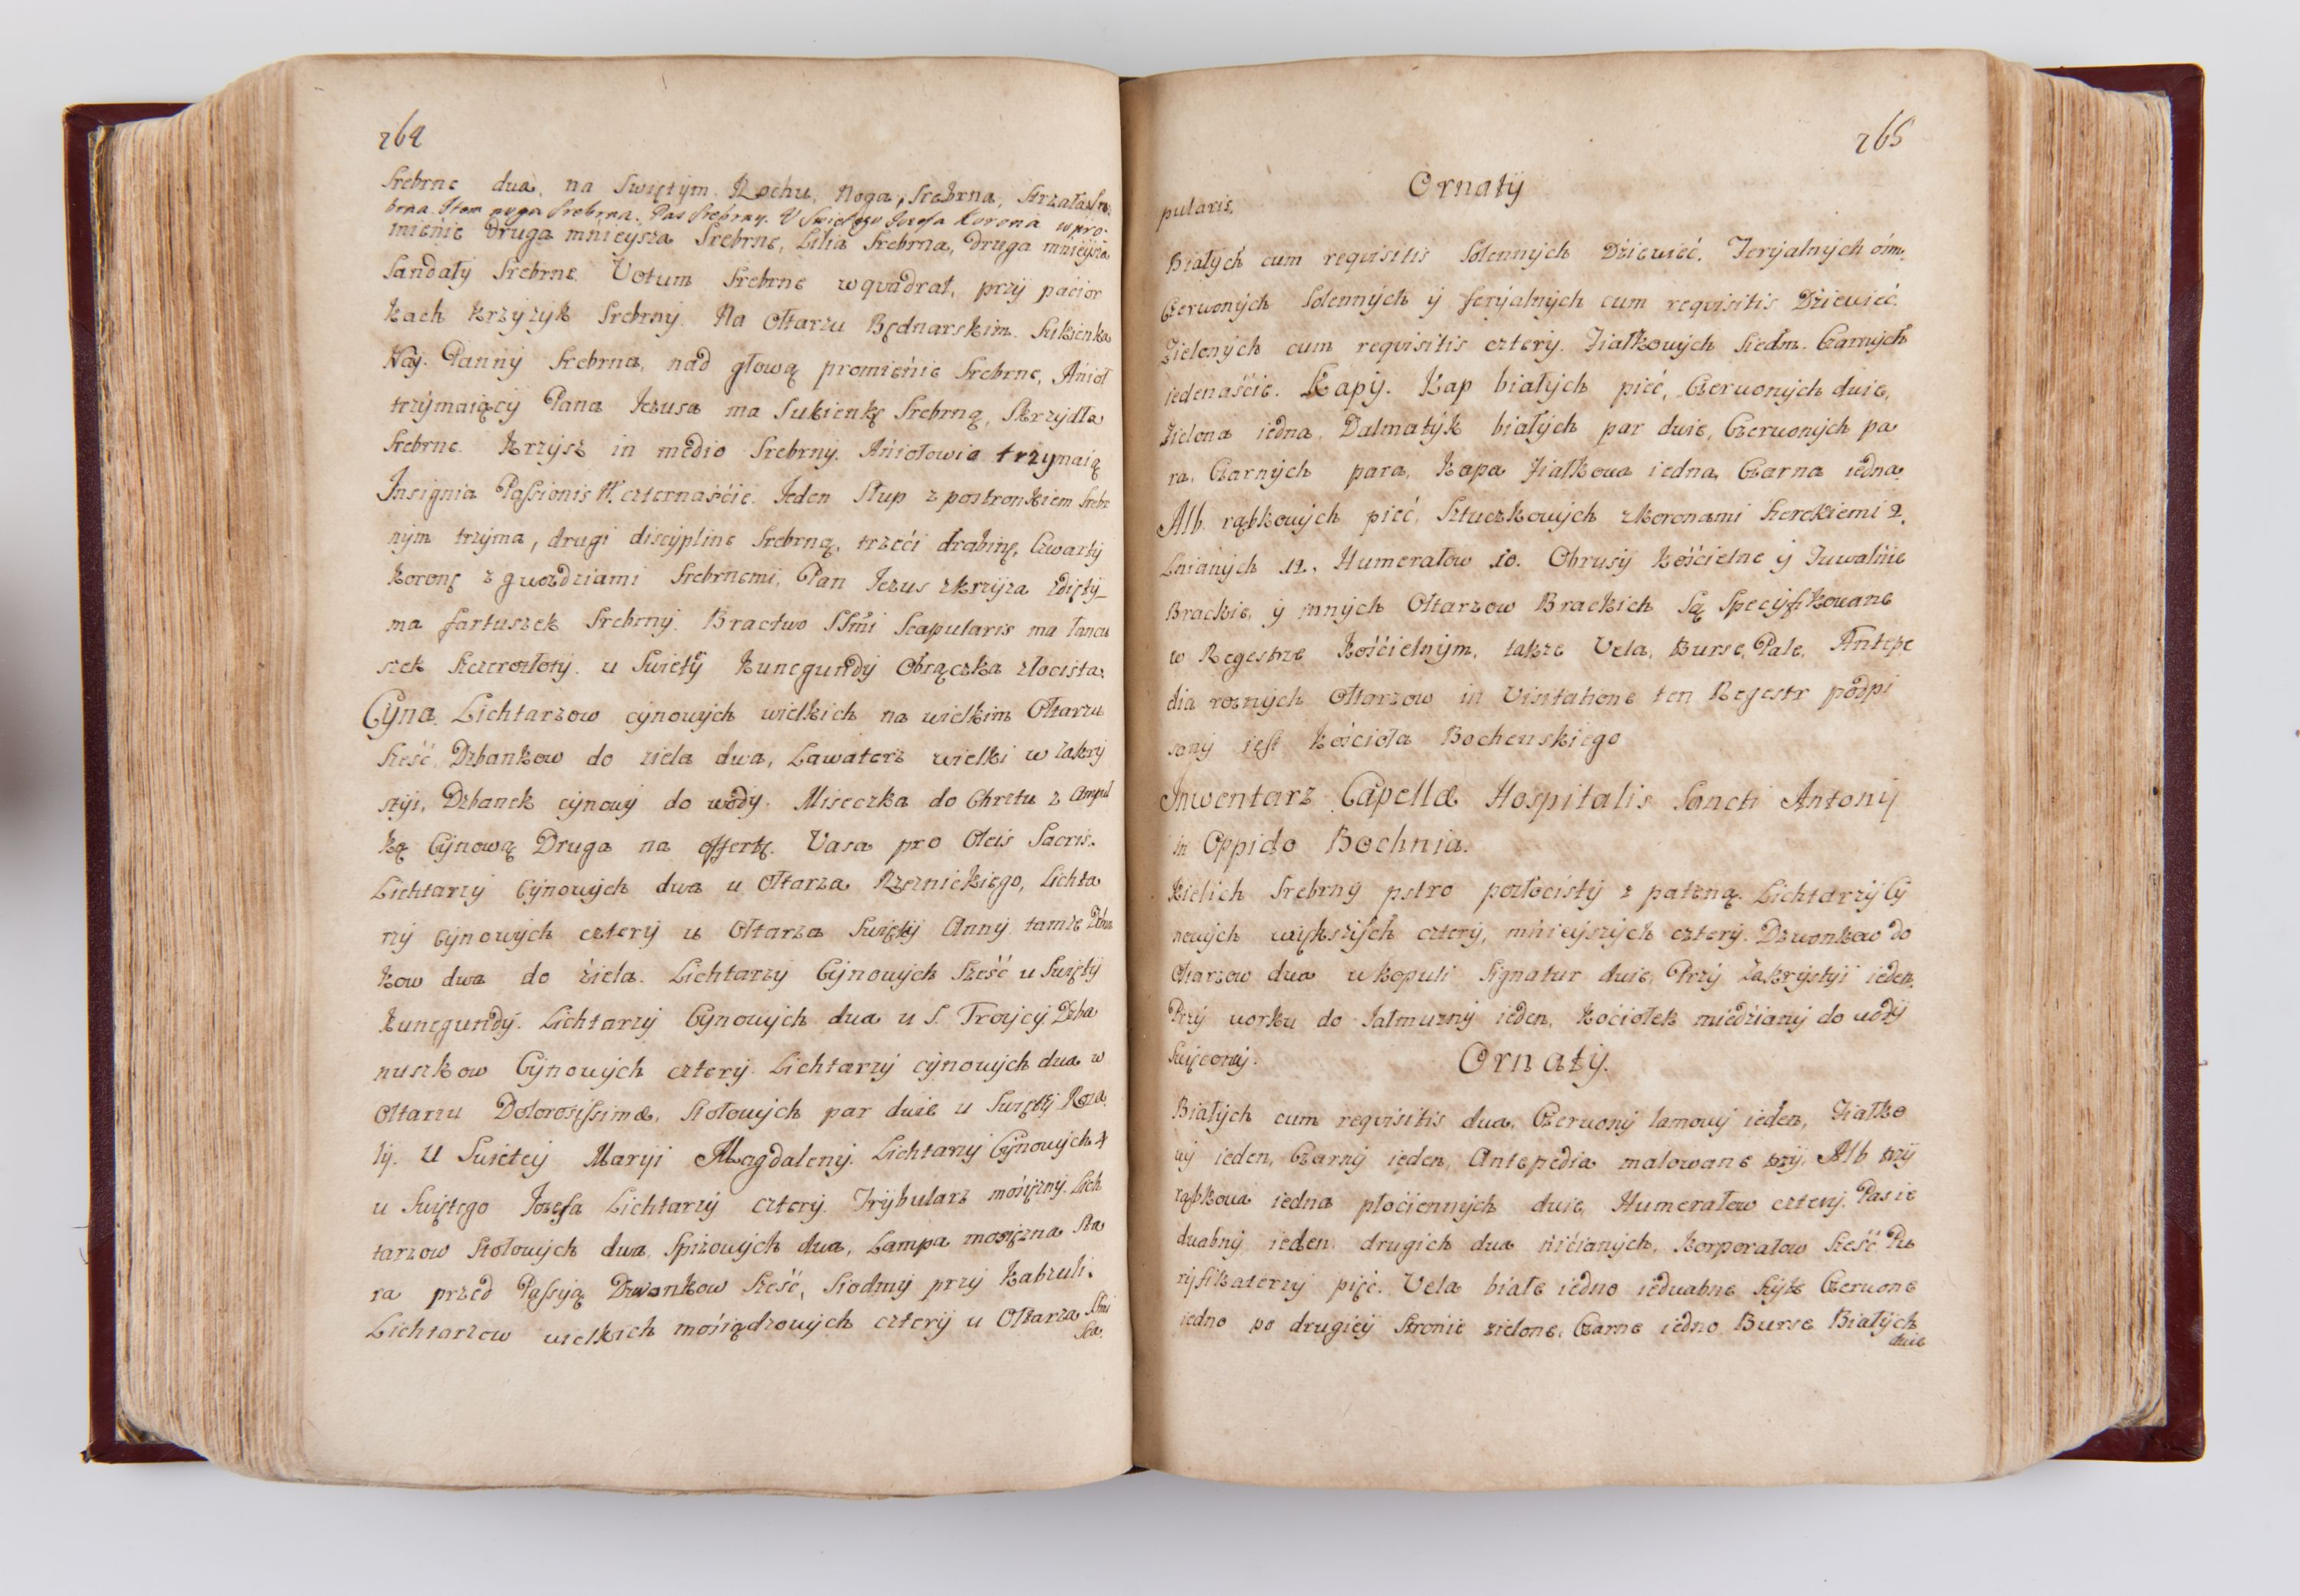 264
Srebrne dua, na Swiętym Rochu, Noga Srebrna, Strzała Sre
brna. Item noga Srebrna. Pas Srebrny. U Swietego Jozefa Korona w pro.
mienie druga mnieysza Srebrne, Lilia Srebrna, druga mnieysza
Sandały Srebrne. Votum Srebrne w qvadrat, przy pacior
kach krzyzyk Srebrny. Na Ołtarzu Będnarskim. Sukienka
Nay. Panny Srebrna, nad głową promienie Srebrne, Anioł
trzymaiący Pana Jezusa ma Sukienkę Srebrną, Skrzydła
Srebrne. Krzysz in medio Srebrny. Aniołowie trzymaią
Insignia Passionis N. czternaście. Jeden Słup z postronkiem Srebr
nym trzyma, drugi discypline Srebrną, trzeci drabinę, Czwarty
koronę z gwozdziami Srebrnemi, Pan Jezus zkrzyza zdięty
ma fartuszek Srebrny. Bractwo SSmi Scapularis ma łancu
szek Szczerozłoty. u Swięty Kunegundy Obrączka złocista.
Cyna. Lichtarzow cynowych wielkich na wielkim Ołtarzu
Sześć, Dzbankow do ziela dwa, Lawaterz wielki w Zakry
styi, Dzbanek cynowy do wody. Miseczka do Chrztu z ampul
ką Cynową Druga na offertę. Vasa pro Oleis Sacris.
Lichtarzy Cynowych dwa u Ołtarza Rzeznickiego, Lichta
rzy Cynowych cztery u Ołtarza Swięty Anny. tamże Dzban
kow dwa do ziela. Lichtarzy Cynowych Sześć u Swięty
Kunegundy. Lichtarzy Cynowych dua u S. Troycy Dzba
nuszkow Cynowych cztery. Lichtarzy cynowych dwa w
Ołtarzu Dolorosissimæ, Stołowych par dwie u Swięty Roza
ly. U Swietey Maryi Magdaleny. Lichtarzy Cynowych 4
u Swiętego Jozefa Lichtarzy cztery. Trybularz mosięzny. Lich
tarzow Stołowych dwa, Spizowych dwa, Lampa mosięzna Sta
ra przed Passyą Dzwonkow Sześć, Siodmy przy Kabzuli.
Lichtarzow wielkich mosiądzowych cztery u Ołtarza SSmi
Sca.
265
Ornaty
pularis.
Białych cum reqvisitis Solennych Dziewieć. Feryalnych osm.
Czerwonych Solennych y feryalnych cum reqvisitis Dziewieć.
Zielonych cum reqvisitis cztery. Fiałkowych Siedm. Czarnych
iedenaście. Kapy. Kap białych pięć, Czerwonych dwie,
Zielona iedna, Dalmatyk białych par dwie, Czerwonych pa
ra, Czarnych para, Kapa Fiałkowa iedna, Czarna iedna.
Alb rąbkowych pieć, Sztuczkowych zkoronami Szerokiemi 2.
Lnianych 12. Humerałow 10. Obrusy Kościelne y Tuwalnie
Brackie, y innych Ołtarzow Brackich Są Specyfikowane
w Regestrze Kościelnym, takze Vela, Burse, Pale, Antepe
dia roznych Ołtarzow in Visitatione ten Regestr podpi
sany iest Kościoła Bochenskiego
Inwentarz Capellæ Hospitalis Sancti Antonij
in Oppido Bochnia.
Kielich Srebrny pstro pozłocisty z pateną. Lichtarzy Cy
nowych większych cztery, mnieyszych cztery. Dzwonkow do
Ołtarzow dwa w kopuli Signatur dwie, Przy Zakrystyi ieden.
Przy worku do Jałmuzny ieden, Kociołek miedziany do wody
Swięcony.
Ornaty.
Białych cum reqvisitis dua, Czerwony lamowy ieden, Fiałko
wy ieden, Czarny ieden, Antepedia malowane trzy, Alb trzy
rąbkowa iedna płociennych dwie, Humerałow cztery. Pas ie
dwabny ieden. drugich dwa nicianych, Korporałow Sześć Pu
ryfikaterzy pięć. Vela białe iedno iedwabne Szyte Czerwone
iedno po drugiey Stronie zielone, Czarne iedno. Burse Białych
dwie